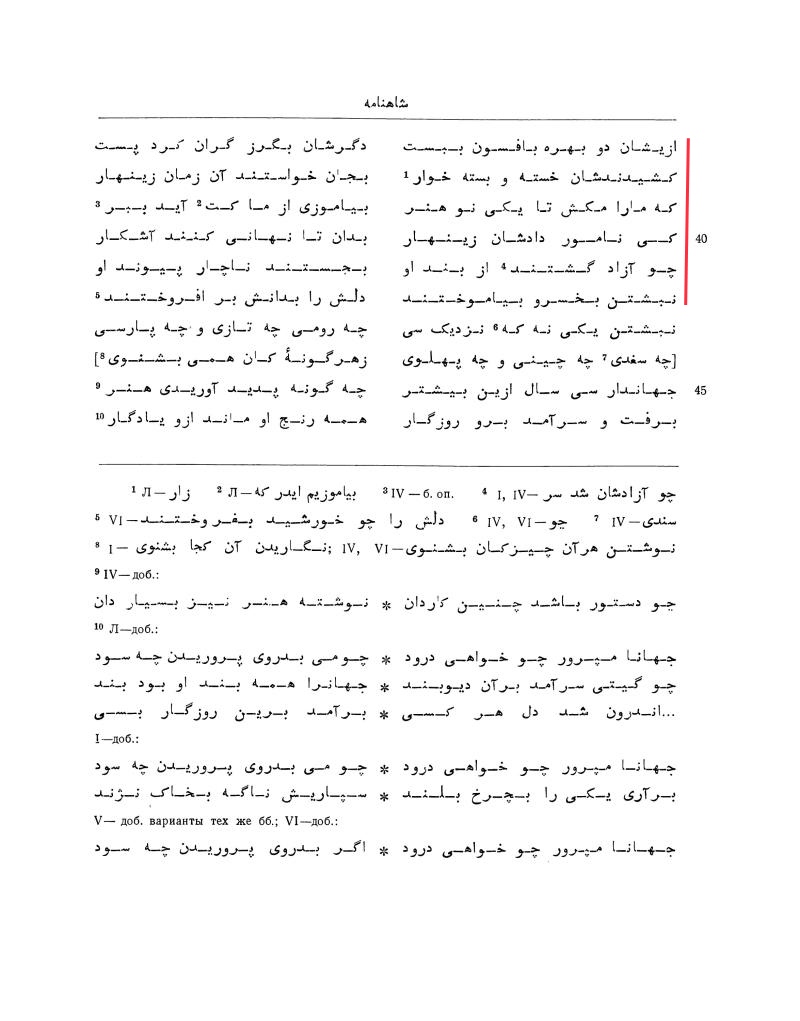 شاهنامه
ازیشان دو بهره بافسون ببست دگرشان بگرز گران کرد پست
کشیدندشان خسته و بسته خوار¹ بجان خواستند آن زمان زینهار
که مارا مکش تا یکی نو هنر بیاموزی از ما کت² آید ببر³
40 کی نامور دادشان زینهار بدان تا نهانی کنند آشکار
چو آزاد گشتند⁴ از بند او بجستند ناچار پیوند او
نبشتن بخسرو بیاموختند دلش را بدانش بر افروختند⁵
نبشتن یکی نه که⁶ نزدیک سی چه رومی چه تازی و چه پارسی
[چه سغدی⁷ چه چینی و چه پهلوی زهرگونهٔ کان همی بشنوی⁸]
45 جهاندار سی سال ازین بیشتر چه گونه پدید آوریدی هنر⁹
برفت و سرآمد برو روزگار همه رنج او ماند ازو یادگار¹⁰
¹ Л— زار ² Л— بیاموزیم ایدر که ³ IV — б. оп. ⁴ I, IV— چو آزادشان شد سر
⁵ VI— دلش را چو خورشید بفروختند ⁶ IV, VI— چو ⁷ IV— سندی
⁸ I— نگاریدن آن کجا بشنوی; IV, VI— نوشتن هرآن چیزکان بشنوی
⁹ IV—доб.:
چو دستور باشد چنین کاردان * نوشته هنر نیز بسیار دان
¹⁰ Л—доб.:
جهانا مپرور چو خواهی درود * چو می بدروی پروریدن چه سود
چو گیتی سرآمد برآن دیوبند * جهانرا همه بند او بود بند
...اندرون شد دل هر کسی * برآمد برین روزگار بسی
I—доб.:
جهانا مپرور چو خواهی درود * چو می بدروی پروریدن چه سود
برآری یکی را بچرخ بلند * سپاریش ناگه بخاک نژند
V— доб. варианты тех же бб.; VI—доб.:
جهانا مپرور چو خواهی درود * اگر بدروی پروریدن چه سود